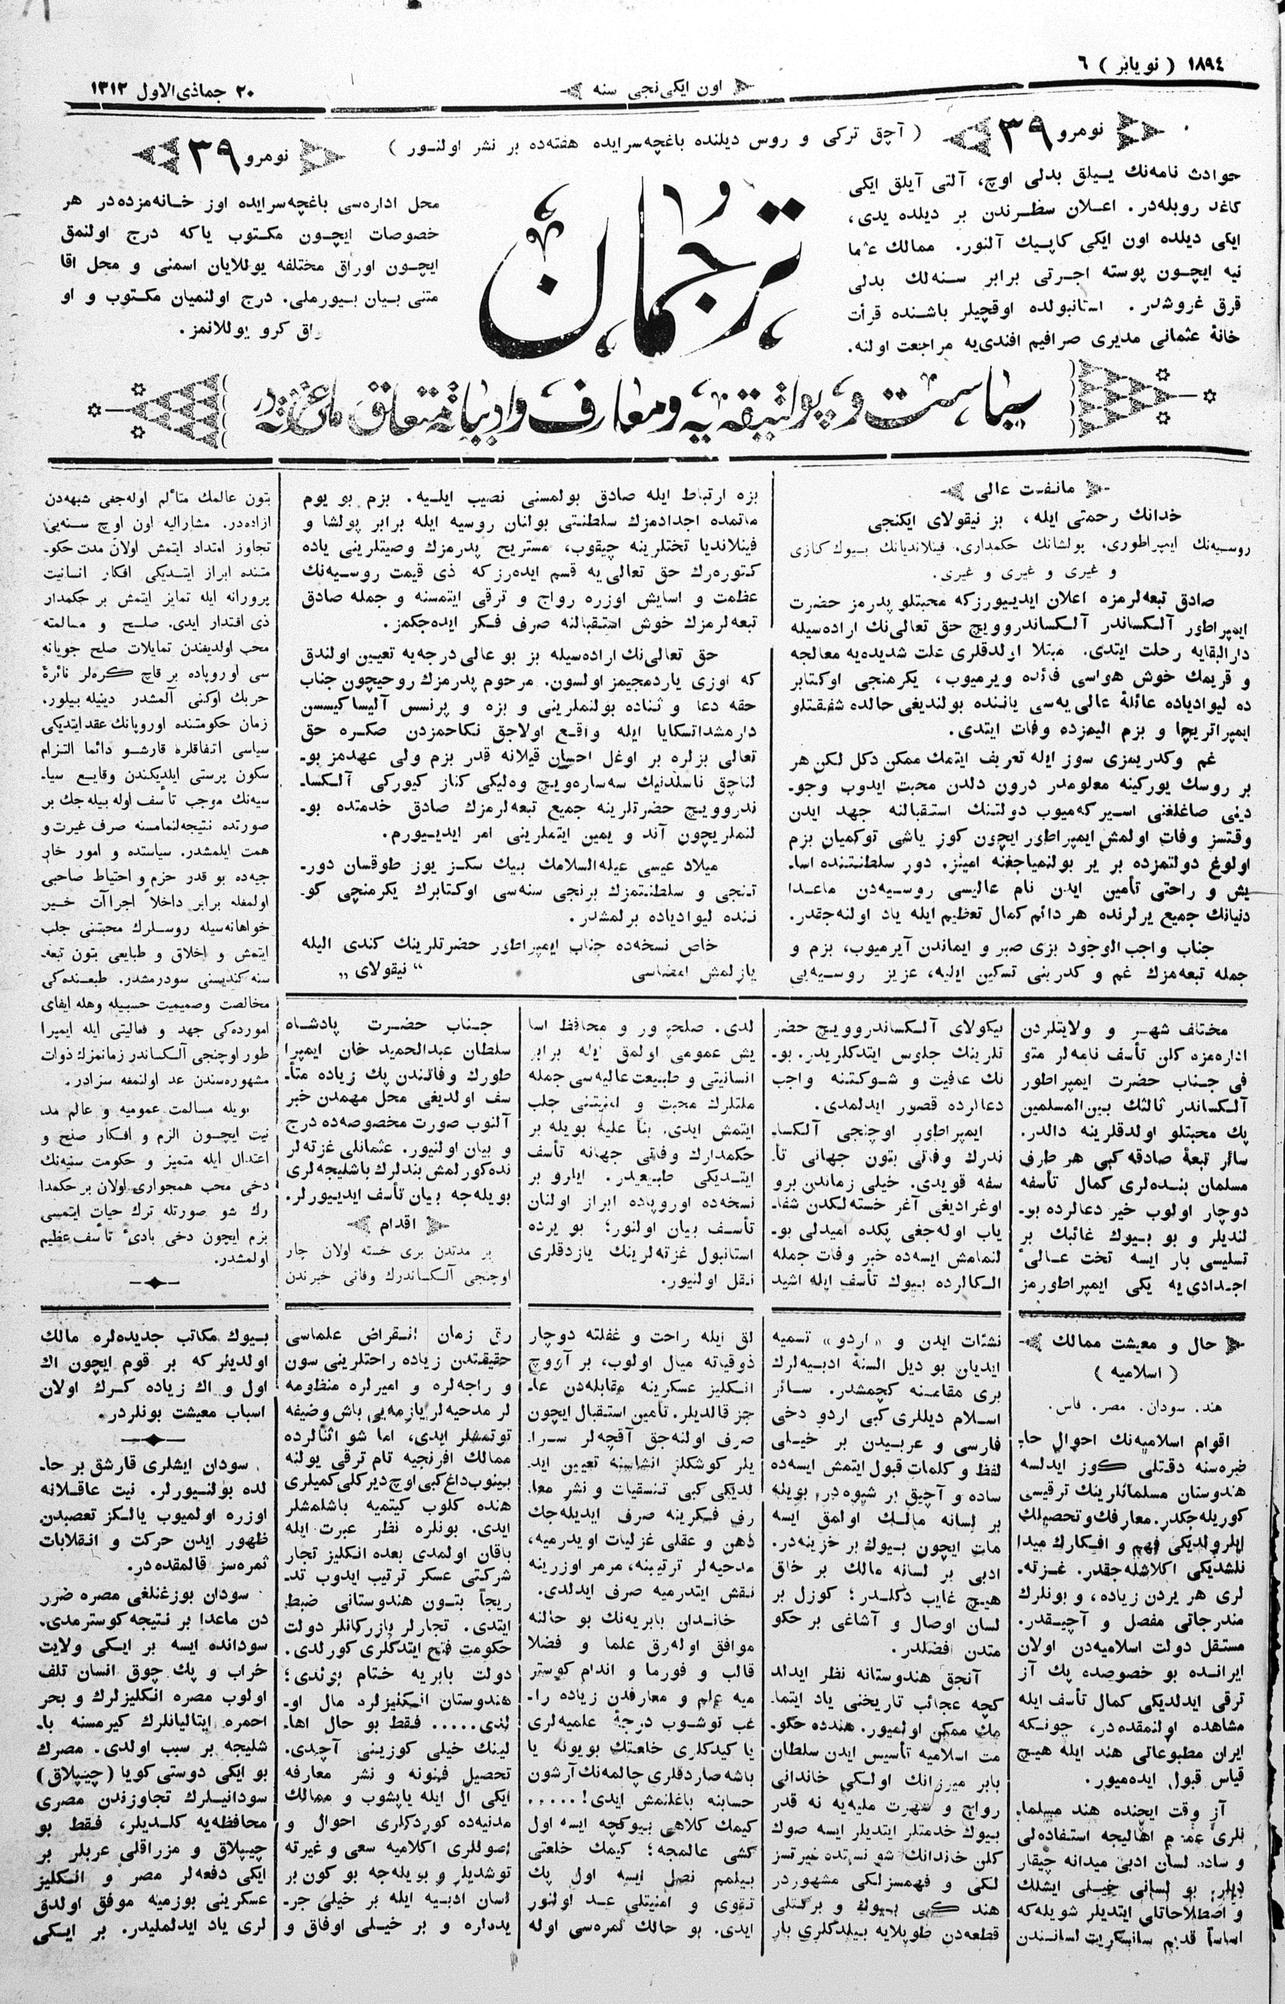 ١٨٩٤ ( نویابر ) ٦
اون ایکی نجی سنه
٢٠ جماذی الاول ١٣١٢
نومرو ٣٩
( آچق ترکی و روس دیلنده باغچه سرایده هفته ده بر نشر اولنور )
نومرو ٣٩
حوادث نامه نك ییلق بدلی اوچ، آلتی آیلق ایکی
كاغد روبله در. اعلان سطرندن بر دیلده یدی،
ایکی دیلده اون ایکی کاپیك آلنور. ممالك عثما
نیه ایچون پوسته اجرتی برابر سنه لك بدلی
قرق غروشدر. استانبولده اوقچیلر باشنده قرأت
خانهٔ عثمانی مدیری صرافیم افندی یه مراجعت اولنه.
ترجمان
محل اداره سی باغچه سرایده اوز خانه مزده در هر
خصوصات ایچون مکتوب یاکه درج اولنمق
ایچون اوراق مختلفه یوللایان اسمنی و محل اقا
متنی بیان بیورملی. درج اولنمیان مکتوب و او
راق کرو یوللانمز.
سیاست و پولتیقه یه و معارف و ادبیاته متعلق ملی غزته در
مانفست عالی
خدانك رحمتی ایله، بز نیقولای ایکنجی
روسیه نك ایپراطوری. پولشانك حکمداری. فینلاندیانك بیوك کنازی
و غیری و غیری و غیری.
صادق تبعه لرمزه اعلان ایدیورزکه محبتلو پدرمز حضرت
ایمپراطور آلکساندر آلکساندروویچ حق تعالی نك اراده سیله
دارالبقایه رحلت ایتدی. مبتلا اولدقلری علت شدیده یه معالجه
و قریمك خوش هواسی فائده ویرمیوب، یکرمنجی اوکتابر
ده لیوادیاده عائلهٔ عالی یه سی یاننده بولندیغی حالده شفقتلو
ایمپراتریچا و بزم الیمزده وفات ایتدی.
غم وکدریمزی سوز ایله تعریف ایتمك ممکن دکل لکن هر
بر روسك یورکینه معلومدر درون دلدن محبت ایدوب وجو-
دینی صاغلغنی اسیرکه میوب دولتنك استقبالنه جهد ایدن
وقتسز وفات اولمش ایمپراطور ایچون کوز یاشی توکمیان بزم
اولوغ دولتمزده بر یر بولنمیاجغنه امینز. دور سلطنتنده اسا-
یش و راحتی تأمین ایدن نام عالیسی روسیه دن ماعدا
دنیانك جمیع یرلرنده هر دائم کمال تعظیم ایله یاد اولنه جقدر.
جناب واجب الوجود بزی صبر و ایماندن آیرمیوب، بزم و
جمله تبعه مزك غم و کدرینی تسکین ایلیه، عزیز روسیه یی
بزه ارتباط ایله صادق بولمسنی نصیب ایلیه. بزم بو یوم
ماتمده اجدادمزك سلطنتی بولنان روسیه ایله برابر پولشا و
فینلاندیا تختلرینه چیقوب، مستریح پدرمزك وصیتلرینی یاده
کتوره رك حق تعالی یه قسم ایده رزکه ذی قیمت روسیه نك
عظمت و اسایش اوزره رواج و ترقی ایتمسنه و جمله صادق
تبعه لرمزك خوش استقبالنه صرف فکر ایده جکمز.
حق تعالی نك اراده سیله بز بو عالی درجه یه تعیین اولندق
که اوزی یاردمجیمز اولسون. مرحوم پدرمزك روحیچون جناب
حقه دعا و ثناده بولنملرینی و بزه و پرنسس آلیساکیسسن
دارمشداتسکایا ایله واقع اولاجق نکاحمزدن صکره حق
تعالی بزلره بر اوغل احسان قیلانه قدر بزم ولی عهدمز بو-
لناچق ناسلدنیك سه ساره ویچ وه لیکی کناز کیورکی آلکسا-
ندروویچ حضرتلرینه جمیع تبعه لرمزك صادق خدمتده بو-
لنملریچون آند و یمین ایتملرینی امر ایدیورم.
میلاد عیسی علیه السلامك بیك سکز یوز طوقسان دور-
تنجی و سلطنتمزك برنجی سنه سی اوکتابرك یکرمنچی کو-
ننده لیوادیاده برلمشدر.
خاص نسخه ده جناب ایمپراطور حضرتلرینك کندی الیله
یازلمش امضاسی „ نیقولای “
بتون عالمك متألم اوله جغی شبهه دن
ازاده در. مشارالیه اون اوچ سنه یی
تجاوز امتداد ایتمش اولان مدت حکو-
متنده ابراز ایتدیکی افکار انسانیت
پرورانه ایله تمایز ایتمش بر حکمدار
ذی اقتدار ایدی. صلح و مسالمته
محب اولدیغندن تمایلات صلح جویانه
سی اوروپاده بر قاچ کره لر نائرهٔ
حربك اوکنی آلمشدر دینیله بیلور.
زمان حکومتنده اوروپانك عقد ایتدیکی
سیاسی اتفاقلره قارشو دائما التزام
سکون پرستی ایلدیکندن وقایع سیا-
سیه نك موجب تأسف اوله بیله جك بر
صورتده نتیجه لنمامسنه صرف غیرت و
همت ایلمشدر. سیاستده و امور خار
جیه ده بو قدر حزم و احتیاط صاحبی
اولمغله برابر داخلاً اجراآت خیر
خواهانه سیله روسلرك محبتنی جلب
ایتمش و اخلاق و طبایعی بتون تبعه-
سنه کندیسنی سودرمشدر. طبعنده کی
مخالصت وصمیمیت حسبیله وهله ایفای
امورده کی جهد و فعالیتی ایله ایمپرا
طور اوچنجی آلکساندر زمانمزك ذوات
مشهوره سندن عد اولنمغه سزادر.
بویله مسالمت عمومیه و عالم مد-
نیت ایچون الزم و افکار صلح و
اعتدال ایله متمیز و حکومت سنیه نك
دخی محب همجواری اولان بر حکمدا
رك شو صورتله ترك حیات ایتمسی
بزم ایچون دخی بادیٔ تأسف عظیم
اولمشدر.
مختلف شهر و ولایتلردن
اداره مزه کلن تأسف نامه لر متو
فی جناب حضرت ایمپراطور
آلکساندر ثالثك بین المسلمین
پك محبتلو اولدقلرینه دالدر.
سائر تبعهٔ صادقه کبی هر طرف
مسلمان بنده لری کمال تأسفه
دوچار اولوب خیر دعالرده بو-
لندیلر و بو بیوك غائبك بر
تسلیسی بار ایسه تخت عالیٔ
اجدادی یه یکی ایمپراطورمز
نیکولای آلکساندروویچ حضر
تلرینك جلوس ایتدکلریدر. بو-
نك عافیت و شوکتنه واجب
دعالرده قصور ایدلمدی.
ایمپراطور اوچنجی آلکسا-
ندرك وفاتی بتون جهانی تأ-
سفه قویدی. خیلی زماندن برو
اوغرادیغی آغر خسته لکدن شفا-
یاب اوله جغی پکده امیدلی بو-
لنمامش ایسه ده خبر وفات جمله
الکالرده بیوك تأسف ایله اشید
لدی. صلحپرور و محافظ اسا
یش عمومی اولمق ایله برابر
انسانیتی و طبیعت عالیه سی جمله
ملتلرك محبت و امنیتنی جلب
ایتمش ایدی. بناً علیه بویله بر
حکمدارك وفاتی جهانه تأسف
ایتدیکی طبیعیدر. ایلرو بر
نسخه ده اوروپاده ابراز اولنان
تأسف بیان اولنور؛ بو یرده
استانبول غزته لرینك یازدقلری
نقل اولنیور.
جناب حضرت پادشاه
سلطان عبدالحمید خان ایمپرا
طورك وفاتندن پك زیاده متأ-
سف اولدیغی محل مهمدن خبر
آلنوب صورت مخصوصه ده درج
و بیان اولنیور. عثمانلی غزته لر
نده کورلمش بندلرك باشلیجه لری
بویله جه بیان تأسف ایدیورلر.
اقدام
بر مدتدن بری خسته اولان چار
اوچنجی آلکساندرك وفاتی خبرندن
حال و معیشت ممالك
( اسلامیه )
هند. سودان. مصر. فاس.
اقوام اسلامیه نك احوال حا-
ضره سنه دقتلی کوز ایدلسه
هندوستان مسلمانلرینك ترقیسی
کوریله جکدر. معارفك و تحصیلك
ایلرولدیکی فهم و افکارك میدا
نلشدیکی اکلاشله جقدر. غزته-
لری هر یردن زیاده، و بونلرك
مندرجاتی مفصل و آچیقدر.
مستقل دولت اسلامیه دن اولان
ایرانده بو خصوصده پك آز
ترقی ایدلدیکی کمال تأسف ایله
مشاهده اولنمقده در، چونکه
ایران مطبوعاتی هند ایله هیچ
قیاس قبول ایده میور.
آز وقت ایچنده هند مسلما-
نلری عموم اهالیجه استفاده لی
و ساده لسان ادبی میدانه چیقار
دیلر. بو لسانی خیلی ایشلك
و اصطلاحاتلی ایتدیلر شویله که
اساساً قدیم سانسکریت لسانندن
نشئات ایدن و «اردو» تسمیه
ایدیان بو دیل السنهٔ ادبیه لرك
بری مقامنه کچمشدر. سائر
اسلام دیللری کبی اردو دخی
فارسی و عربیدن بر خیلی
لفظ و کلمات قبول ایتمش ایسه ده
ساده و آچیق بر شیوه در. بویله
بر لسانه مالك اولمق ایسه
مات ایچون بیوك بر خزینه در.
ادبی بر لسانه مالك بر خلق
هیچ غایب دکلدر؛ کوزل بر
لسان اوصال و آشاغی بر حکو
متدن افضلدر.
آنجق هندوستانه نظر ایدلد
کچه عجائب تاریخنی یاد ایتما-
مك ممکن اولمیور. هندده حکو-
مت اسلامیه تأسیس ایدن سلطان
بابر میرزانك اولکی خاندانی
رواج و شهرت ملیه یه نه قدر
بیوك خدمتلر ایتدیلر ایسه صوك
کلن خاندانك شو نستده غیرتسز
لکی و فهمسزلکی مشهوردر
هند کبی بیوك و برکتلی
قطعه دن طوپلایه بیلدکلری بار
لق ایله راحت و غفلته دوچار
ذوقیاته میال اولوب، بر آووچ
انکلیز عسکرینه مقابله دن عا-
جز قالدیلر. تأمین استقبال ایچون
صرف اولنه جق آقچه لر سرا-
یلر کوشکلر انشاسنه تعیین اید-
لدیکی کبی تنسقیات و نشر معا-
رف فکرینه صرف ایدیله جك
ذهن و عقلی غزلیات اویدرمیه،
مدحیه لر ترتیبنه، مرمر اوزرینه
نقش ایتدرمیه صرف ایدلدی.
خاندان بابریه نك بو حالنه
موافق اوله رق علما و فضلا
قالب و فورما و اندام کوستر
میه علم و معارفدن زیاده را-
غب توشوب درجهٔ علمیه لری
یا کیدکلری خلعتك بویونه یا
باشه صاردقلری چالمه نك آرشون
حسابنه باغلنمش ایدی! .....
کیمك کلاهی بیوکچه ایسه اول
کشی عالمجه؛ کیمك خلعتی
بیلمم نصل ایسه اول پك
تقوی و امنیتلی عد اولنور
ایدی. بو حالك ثمره سی اوله
رق زمان انقراض علماسی
حقیقتدن زیاده راحتلرینی سون
و راجه لره و امیرلره منظومه
لر مدحیه لر یازمه یی باش وضیفه
توتمشلر ایدی، اما شو اثنالرده
ممالك افرنجیه تام ترقی یولنه
بینوب داغ کبی اوچ دیرکلی کمیلری
هنده کلوب کیتمیه باشلمشلر
ایدی. بونلره نظر عبرت ایله
باقان اولمدی بعده انکلیز تجار
شرکتی عسکر ترتیب ایدوب تد-
ریجاً بتون هندوستانی ضبط
ایتدی. تجارلر بازرکانلر دولت
حکومت فتح ایتدکلری کورلدی.
دولت بابریه ختام بولندی؛
هندوستان انکلیزلره مال او-
لندی..... فقط بو حال اها-
لینك خیلی کوزینی آچدی.
تحصیل فنونه و نشر معارفه
ایکی ال ایله یاپشوب و ممالك
مدنیه ده کوردکلری احوال و
اصوللری اکلامیه سعی و غیرته
توشدیلر و بویله جه بو کون بر
لسان ادبیه ایله بر خیلی جر-
یده لره و بر خیلی اوفاق و
بیوك مکاتب جدیده لره مالك
اولدیلرکه بر قوم ایچون اك
اول و اك زیاده کرك اولان
اسباب معیشت بونلردر.
سودان ایشلری قارشق بر حا-
لده بولنیورلر. نیت عاقلانه
اوزره اولمیوب یالکز تعصبدن
ظهور ایدن حرکت و انقلابات
ثمره سز قالمقده در.
سودان بوزغنلغی مصره ضرر
دن ماعدا بر نتیجه کوسترمدی.
سودانده ایسه بر ایکی ولایت
خراب و پك چوق انسان تلف
اولوب مصره انکلیزلرك و بحر
احمره ایتالیانلرك کیرمسنه با-
شلیجه بر سبب اولدی. مصرك
بو ایکی دوستی کویا (چیپلاق)
سودانیلرك تجاوزندن مصری
محافظه یه کلدیلر، فقط بو
چیپلاق و مزراقلی عربلر بر
ایکی دفعه لر مصر و انکلیز
عسکرینی بوزمیه موفق اولدق
لری یاد ایدلملیدر. بر ایکی